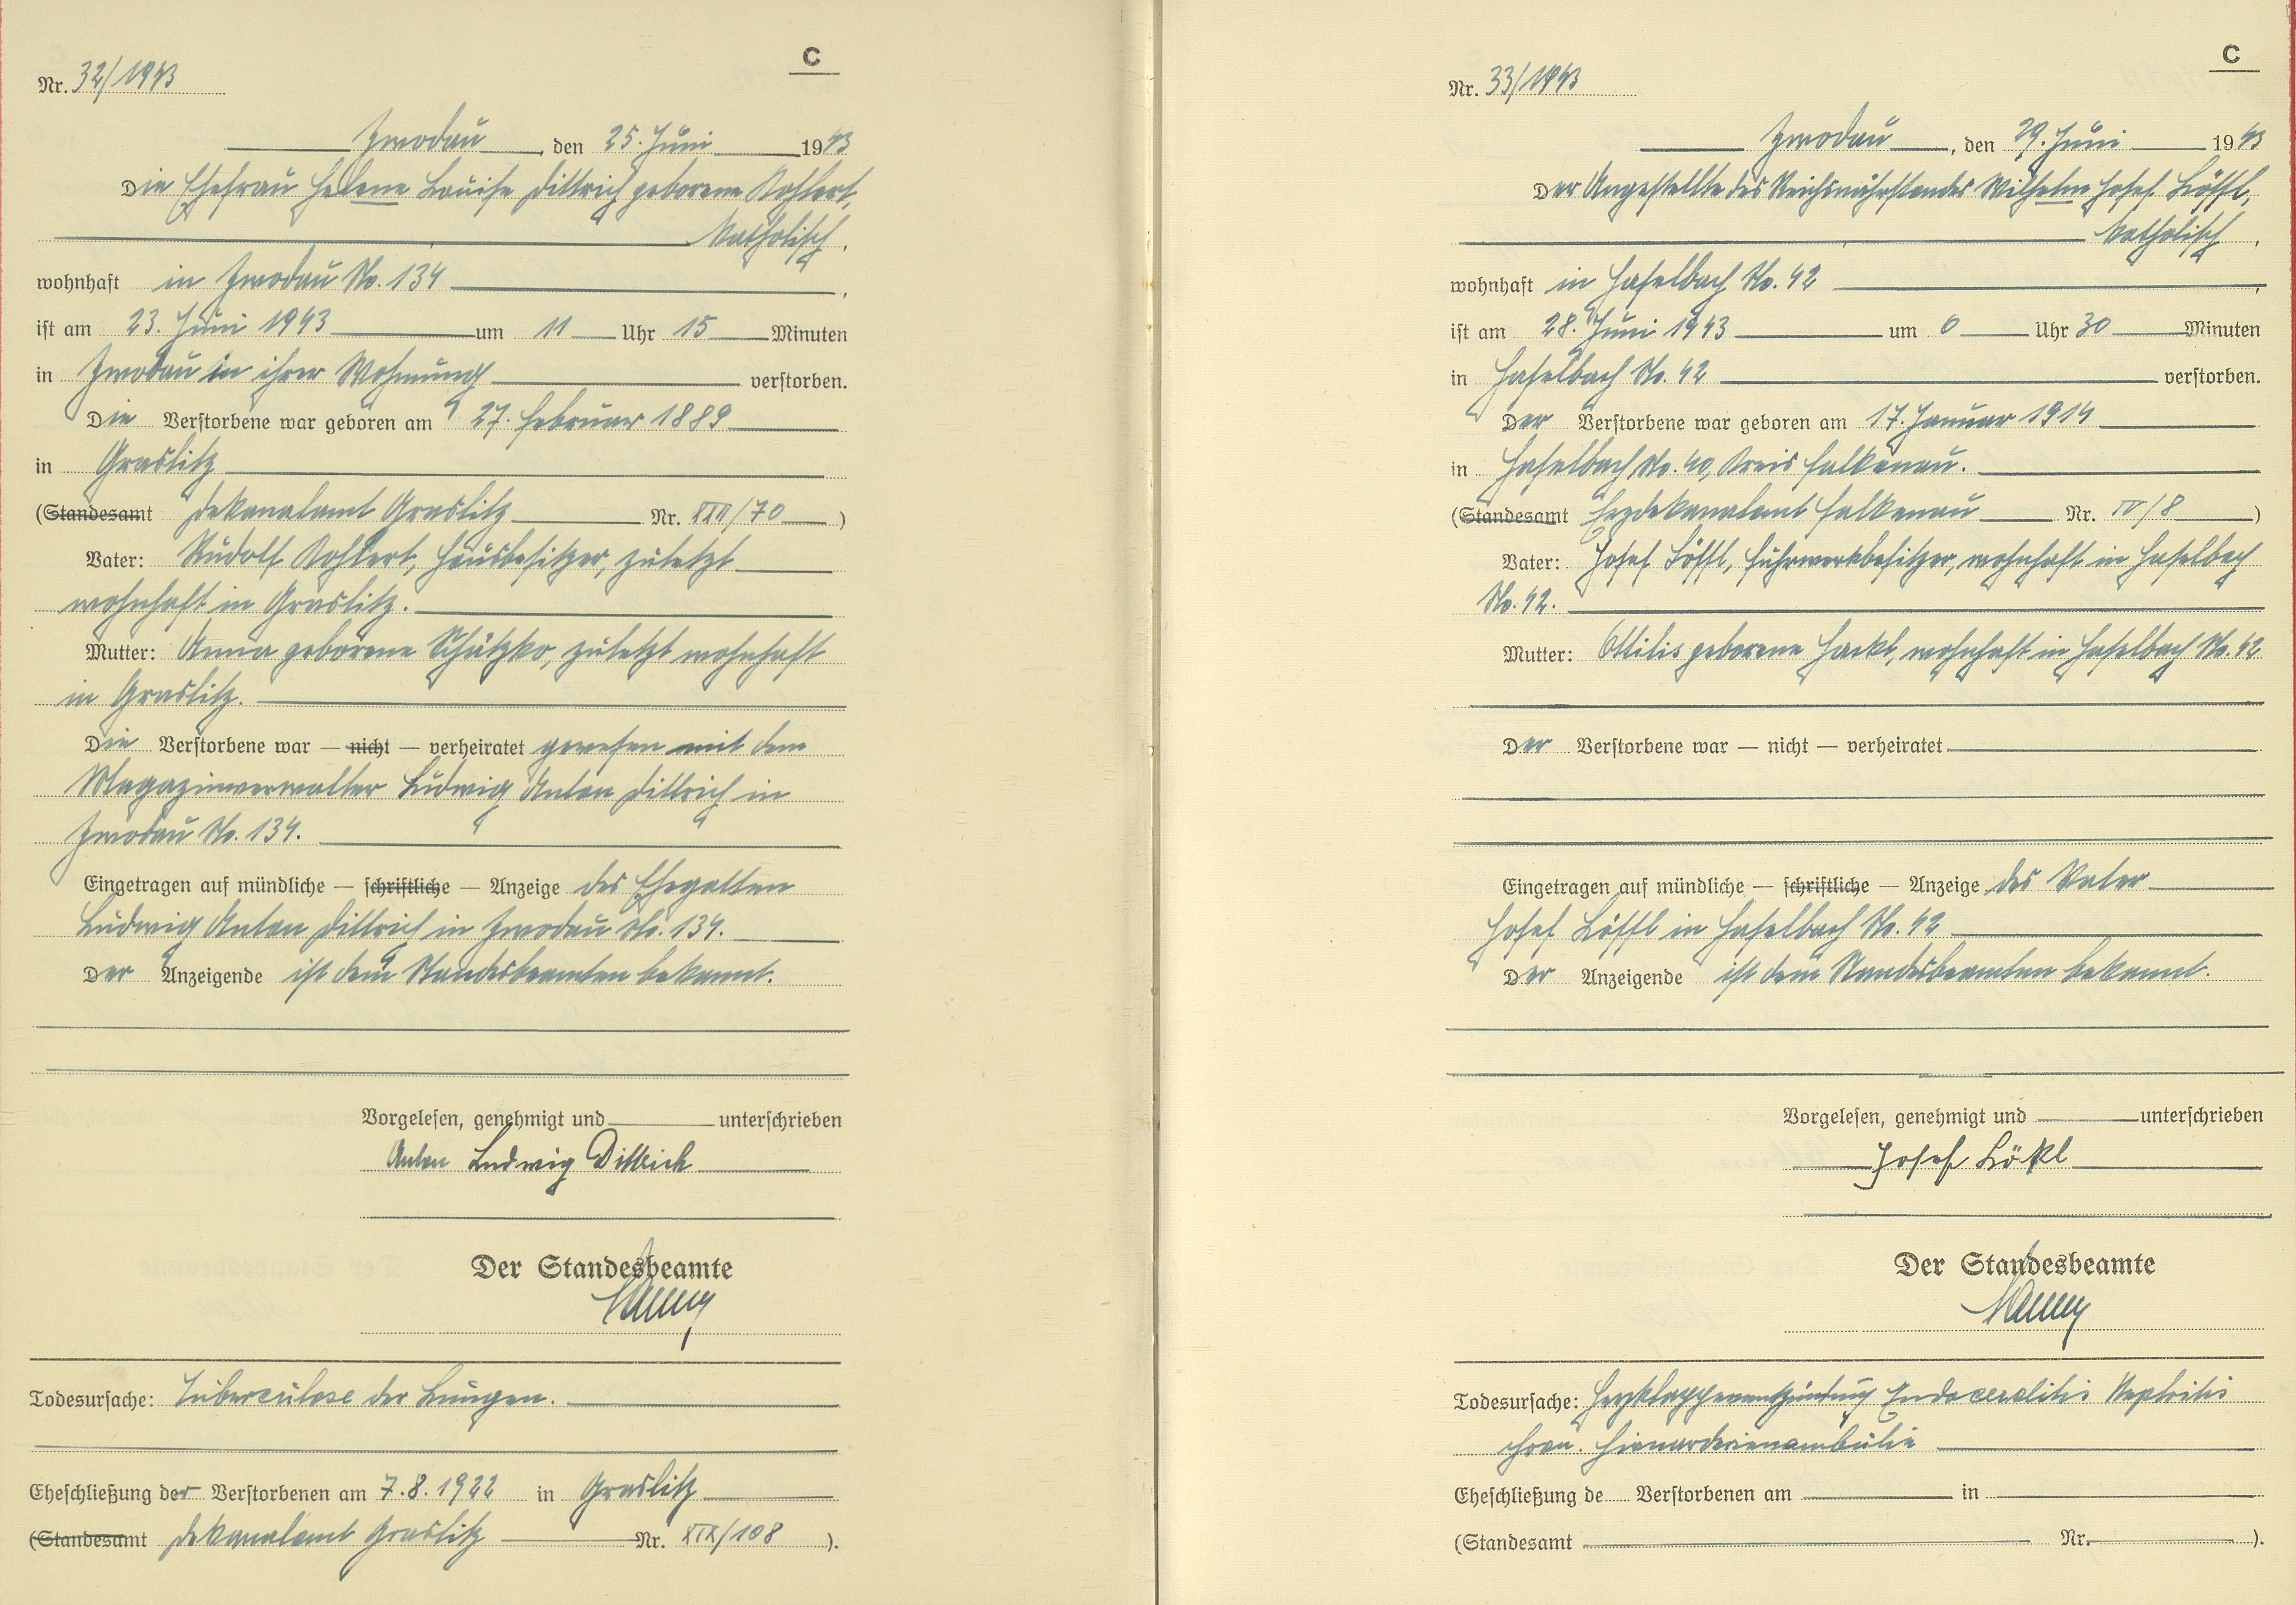 C
Nr. 32/1943
Zwodau, den 25. Juni 1943
Die Ehefrau Helene Louise Dittrich geborene Kohlert,
katholisch,
wohnhaft in Zwodau No. 134,
ist am 23. Juni 1943 um 11 Uhr 15 Minuten
in Zwodau in ihrer Wohnung verstorben.
Die Verstorbene war geboren am 27. Februar 1889
in Graslitz
(Standesamt Dekanalamt Graslitz Nr. /70)
Vater: Rudolf Kohlert, Hausbesitzer, zuletzt
wohnhaft in Graslitz.
Mutter: Anna geborene Schützko, zuletzt wohnhaft
in Graslitz.
Die Verstorbene war — nicht — verheiratet gewesen mit dem
Magazinverwalter Ludwig Anton Dittrich in
Zwodau No. 134.
Eingetragen auf mündliche — schriftliche — Anzeige des Ehegatten
Ludwig Anton Dittrich in Zwodau No. 134.
Der Anzeigende ist dem Standesbeamten bekannt.
Vorgelesen, genehmigt und unterschrieben
Anton Ludwig Dittrich
Der Standesbeamte
Todesursache: Tuberculose der Lungen.
Eheschließung der Verstorbenen am 7.8.1922 in Graslitz
(Standesamt Dekanalamt Graslitz Nr. XIX/108).
C
Nr. 33/1943
Zwodau, den 29. Juni 1943
Der Angestellte des Reichsnährstandes Wilhelm Josef Löffl,
katholisch,
wohnhaft in Haselbach No. 42,
ist am 28. Juni 1943 um 0 Uhr 30 Minuten
in Haselbach No. 42 verstorben.
Der Verstorbene war geboren am 17. Januar 1914
in Haselbach No. 40, Kreis Falkenau.
(Standesamt Erzdekanalamt Falkenau Nr. IV/8)
Vater: Josef Löffl, Fuhrwerkbesitzer, wohnhaft in Haselbach
No. 42.
Mutter: Ottilie geborene Hackl, wohnhaft in Haselbach No. 42
Der Verstorbene war — nicht — verheiratet
Eingetragen auf mündliche — schriftliche — Anzeige des Vater
Josef Löffl in Haselbach No. 42
Der Anzeigende ist dem Standesbeamten bekannt.
Vorgelesen, genehmigt und unterschrieben
Josef Löffl
Der Standesbeamte
Todesursache: Herzklappenentzündung Nephritis
chron.
Eheschließung de Verstorbenen am in
(Standesamt Nr. ).